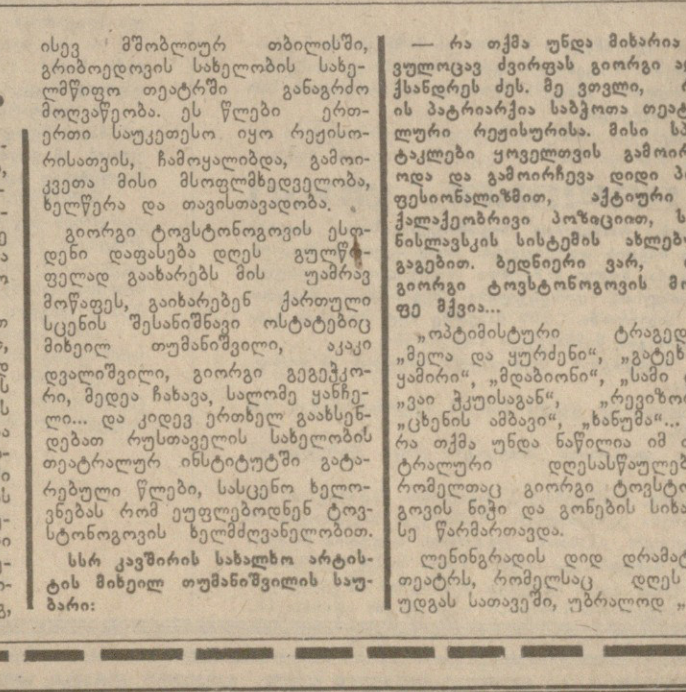 ისევ მშობლიურ თბილისში,
გრიბოედოვის სახელობის სახე-
ლმწიფო თეატრში განაგრძო
მოღვაწეობა. ეს წლები ერთ-
ერთი საუკეთესო იყო რეჟისო-
რისათვის, ჩამოყალიბდა, გამოი-
კვეთა მისი მსოფლმხედველობა,
ხელწერა და თავისთავადობა.
გიორგი ტოვსტონოგოვის ესო-
დენი დაფასება დღეს გულწ
ფელად გაახარებს მის უამრავ
მოწაფეს, გაიხარებენ ქართული
სცენის შესანიშნავი ოსტატებიც
მიხეილ თუმანიშვილი, აკაკი
დვალიშვილი, გიორგი გეგეჭკო-
რი, მედეა ჩახავა, სალომე ყანჩე-
ლი... და კიდევ ერთხელ გაახსენ-
დებათ რუსთაველის სახელობის
თეატრალურ ინსტიტუტში გატა-
რებული წლები, სასცენო ხელო-
ვნებას რომ ეუფლებოდნენ ტოვ-
სტონოგოვის ხელმძღვანელობით.
სსრ კავშირის სახალხო არტის-
ტის მიხეილ თუმანიშვილის საუ-
ბარი:
— რა თქმა უნდა მიხარია
ვულოცავ ძვირფას გიორგი
ქსანდრეს ძეს. მე ვთვლი,
ის პატრიარქია საბჭოთა თეატ
ლური რეჟისურისა. მისი
ტაკლები ყოველთვის გამოირ
ოდა და გამოირჩევა დიდი
ფესიონალიზმით, აქტიური
ქალაქეობრივი პოზიციით,
ნისლავსკის სისტემის ახლებ
გაგებით. ბედნიერი ვარ,
გიორგი ტოვსტონოგოვის მო
ფე მქვია...
„ოპტიმისტური ტრაგედ
„მელა და ყურძენი“, „გატეხ
ყამირი“, „მდაბიონი“, „სამი
„ვაი ჭკუისაგან“, „რევიზო
„ცხენის ამბავი“, „ხანუმა“...
რა თქმა უნდა ნაწილია იმ
ტრალური დღესასწაულებ
რომელთაც გიორგი ტოვსტო
გოვის ნიჭი და გონების სიხა
სე წარმართავდა.
ლენინგრადის დიდ დრამატ
თეატრს, რომელსაც დღეს
უდგას სათავეში, უბრალოდ „